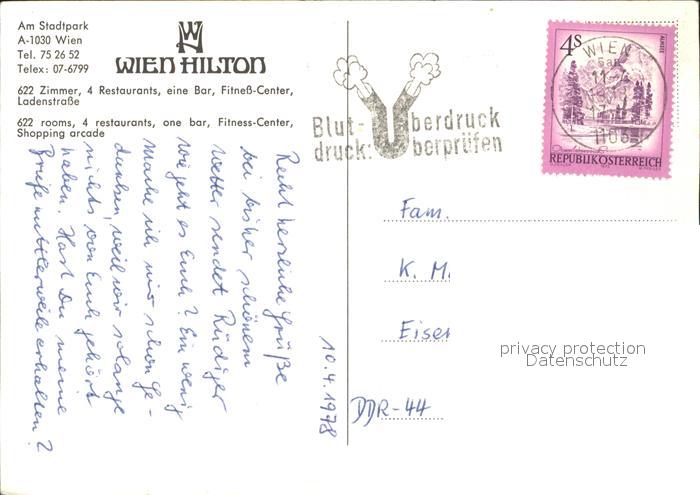 Am Stadtpark
A-1030 Wien
Tel. 75 26 52
Telex: 07-6799
WIEN HILTON
622 Zimmer, 4 Restaurants, eine Bar, Fitneß-Center,
Ladenstraße
622 rooms, 4 restaurants, one bar, Fitness-Center,
Shopping arcade
10.4.1978
Recht herzliche Grüße
bei bisher schönem
Wetter sendet Rüdiger
Wie geht es Euch? Ein wenig
mache ich mir schon Ge-
danken, weil wir solange
nichts von Euch gehört
haben. Hast Du meine
Briefe mittlerweile erhalten?
Blut- Überdruck
druck: überprüfen
WIEN
1103
4S
ALMSEE
REPUBLIK ÖSTERREICH
Fam.
K. M.
Eisen
DDR-44
privacy protection
Datenschutz